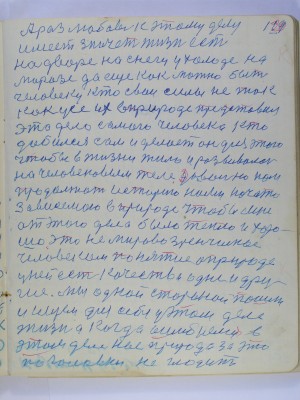 А раз любовь к этому делу
имеет значет жизн есть
на дворе на снегу и холоде на
морозе да еще как можно быть
человеку кто свои силы не так
как усе их в природе представил
это дело самого человека кто
добился сам и делает он для этого
чтобы в жизни жило и развивалось
на человековым теле
продолжает историю нами начато
зависемою в природе чтобы мне
от этого дела было тепло и хоро-
шо это не мировозренческое
человеком понятие а природа
у ней есть качества одни и дру-
гие. Мы одной стороной пошли
и ищем для себя у этом деле
жизн а когда в
этом деле нас природа за это
по головки не гладить